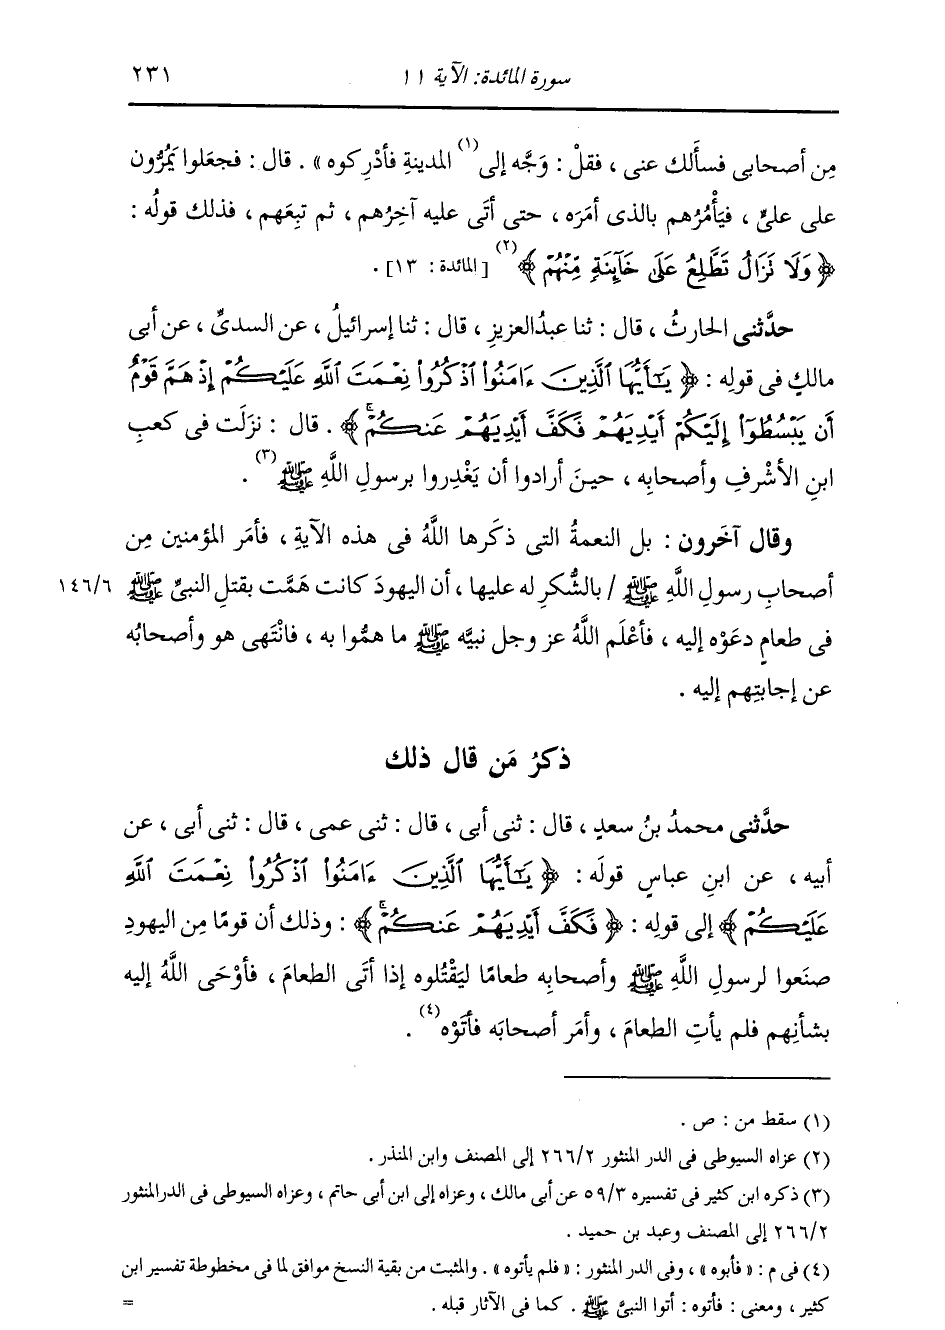 سورة المائدة: الآية ١١ ٢٣١
مِن أصحابى فسأَلك عنى ، فقلْ : وَجَّه إلى(١) المدينةِ فأدْرِكوه » . قال : فجعَلوا يَمُرُّون
على علىٍّ ، فيَأْمُرُهم بالذى أمَرَه ، حتى أتَى عليه آخِرُهم ، ثم تبِعَهم ، فذلك قولُه :
﴿ وَلَا تَزَالُ تَطَّلِعُ عَلَىٰ خَآئِنَةٍ مِّنْهُمْ ﴾(٢) [ المائدة : ١٣] .
حدَّثنى الحارثُ ، قال : ثنا عبدُ العزيزِ ، قال : ثنا إسرائيلُ ، عن السدىِّ ، عن أبى
مالكٍ فى قولِه : ﴿ يَـٰٓأَيُّهَا ٱلَّذِينَ ءَامَنُوا۟ ٱذْكُرُوا۟ نِعْمَتَ ٱللَّهِ عَلَيْكُمْ إِذْ هَمَّ قَوْمٌ
أَن يَبْسُطُوٓا۟ إِلَيْكُمْ أَيْدِيَهُمْ فَكَفَّ أَيْدِيَهُمْ عَنكُمْ ۚ ﴾ . قال : نزَلَت فى كعبِ
ابنِ الأشْرفِ وأصحابِه ، حينَ أرادوا أن يَغْدِروا برسولِ اللَّهِ ﷺ(٣) .
وقال آخَرون : بل النعمةُ التى ذكَرها اللَّهُ فى هذه الآيةِ ، فأمَر المؤمنين مِن
أصحابِ رسولِ اللَّهِ ﷺ / بالشُّكرِ له عليها ، أن اليهودَ كانت هَمَّت بقتلِ النبىِّ ﷺ ١٤٦/٦
فى طعامٍ دعَوْه إليه ، فأعْلَم اللَّهُ عز وجل نبيَّه ﷺ ما همُّوا به ، فانْتَهى هو وأصحابُه
عن إجابتِهم إليه .
ذكرُ مَن قال ذلك
حدَّثنى محمدُ بنُ سعدٍ ، قال : ثنى أبى ، قال : ثنى عمى ، قال : ثنى أبى ، عن
أبيه ، عن ابنِ عباسٍ قولَه : ﴿ يَـٰٓأَيُّهَا ٱلَّذِينَ ءَامَنُوا۟ ٱذْكُرُوا۟ نِعْمَتَ ٱللَّهِ
عَلَيْكُمْ ﴾ إلى قولِه : ﴿ فَكَفَّ أَيْدِيَهُمْ عَنكُمْ ۚ ﴾ : وذلك أن قومًا مِن اليهودِ
صنَعوا لرسولِ اللَّهِ ﷺ وأصحابِه طعامًا ليَقْتُلوه إذا أتَى الطعامَ ، فأوْحَى اللَّهُ إليه
بشأنِهم فلم يأتِ الطعامَ ، وأمَر أصحابَه فأتَوْه(٤) .
(١) سقط من : ص .
(٢) عزاه السيوطى فى الدر المنثور ٢٦٦/٢ إلى المصنف وابن المنذر .
(٣) ذكره ابن كثير فى تفسيره ٥٩/٣ عن أبى مالك ، وعزاه إلى ابن أبى حاتم ، وعزاه السيوطى فى الدر المنثور
٢٦٦/٢ إلى المصنف وعبد بن حميد .
(٤) فى م : « فأبوه » ، وفى الدر المنثور : « فلم يأتوه » . والمثبت من بقية النسخ موافق لما فى مخطوطة تفسير ابن
كثير ، ومعنى : فأتوه : أتوا النبىَّ ﷺ . كما فى الآثار قبله . =